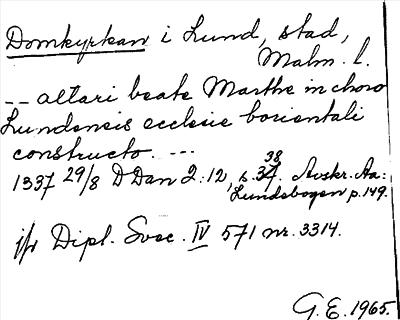 Domkyrkan i Lund, stad,
Malm. l.
-- altari beate Marthe in choro
Lundensis ecclesie borientali
constructo. ---
1337 29/8 D Dan 2:12, s. 37. 38 Avskr. Aa:
Lundabogen p. 149.
jfr Dipl. Svec. IV 571 nr. 3314.
G. E. 1965.